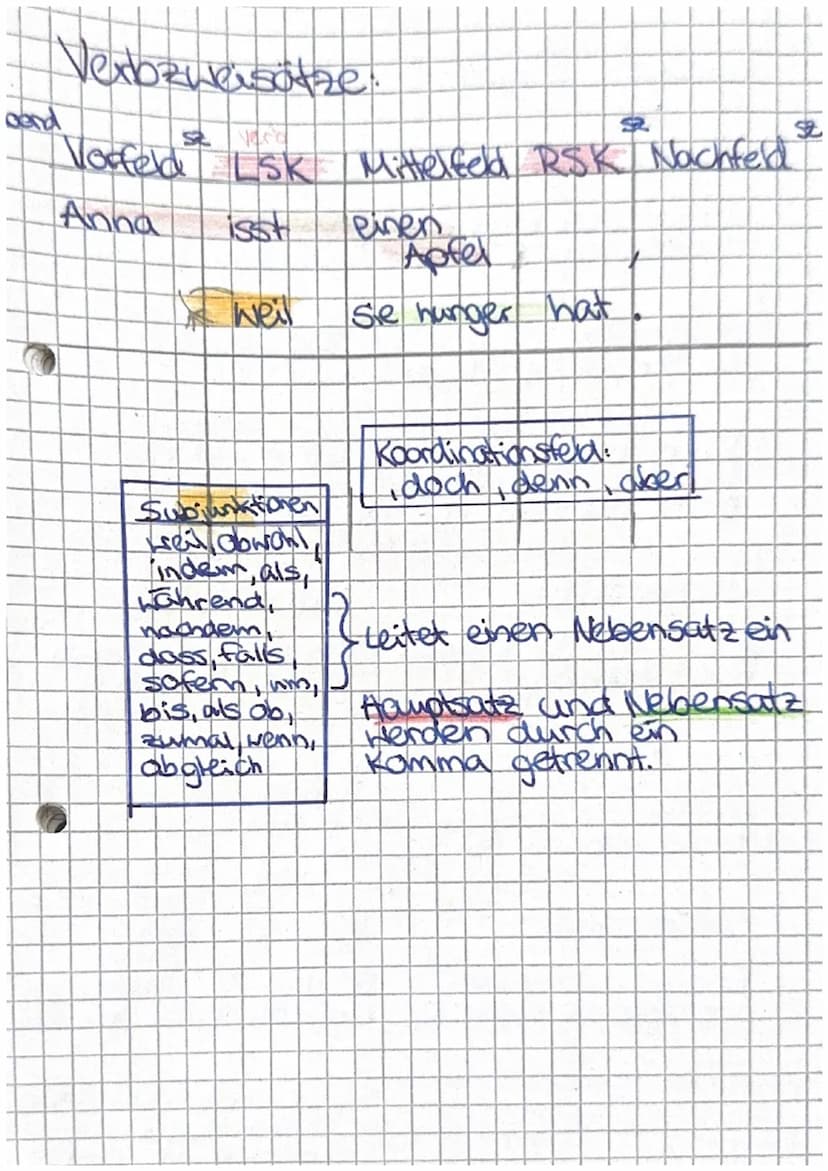 Verbzweisätze:
oord
Vorfeld SZ LSK Mittelfeld RSK SZ Nachfeld SZ
verb
Anna isst einen
Apfel ,
weil sie hunger hat .
Koordinationsfeld:
, doch , denn , aber
Subjunktionen
weil, obwohl,
indem, als,
während,
nachdem,
dass, falls,
sofern, um,
bis, als ob,
zumal, wenn,
abgleich
Leitet einen Nebensatz ein
Hauptsatz und Nebensatz
werden durch ein
Komma getrennt.